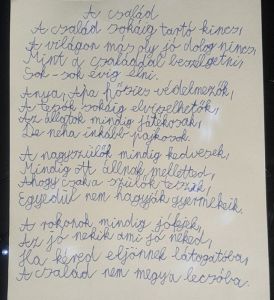 A család
A család sokáig tartó kincs,
A világon más oly jó dolog nincs,
Mint a családdal beszélgetni,
Sok-sok évig élni.
Anya, Apa hősies védelmezők,
A tesók sokáig elviselhetők,
Az állatok mindig játékosak,
De néha inkább pajkosak.
A nagyszülők mindig kedvesek,
Mindig ott állnak melletted,
Ahogy csak a szülők teszik
Egyedül nem hagyják gyermekeik.
A rokonok mindig jófejek,
Az jó nekik ami jó neked,
Ha kéred eljönnek látogatóba,
A család nem megy a lecsóba.